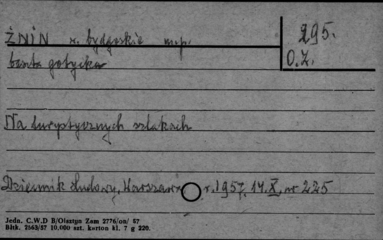 ŻNIN w. bydgoskie m.p.
295.
O.Z.
baszta gotycka
Na turystycznych szlakach
Dziennik Ludowy, Warszawa r. 1957, 14.X, nr 225
Jedn. C.W.D B/Olsztyn Zam 2776/on/ 57
Błtk. 7663/57 10.000 szt. karton kl. 7 g 220.